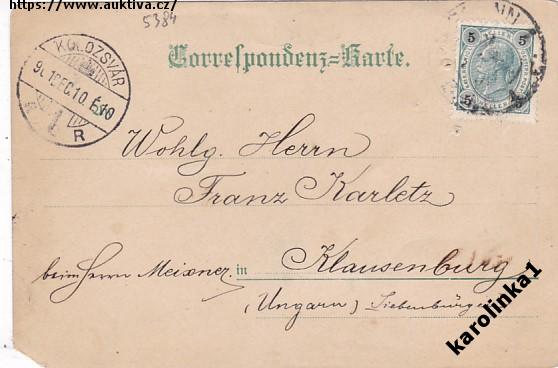 https://www.auktiva.cz/
5384
Correspondenz-Karte.
KOLOZSVÁR
R
5 5
5 5
Wohlg. Herrn
Franz Karletz
beim Herrn Meixner in Klausenburg
(Ungarn) Siebenbürgen
karolinka1